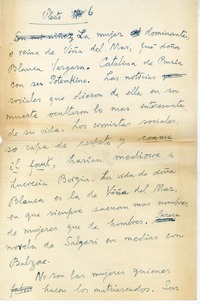 Pleto 6
La mujer dominante,
o reina de Viña del Mar, fué doña
Blanca Vergara. Catalina de Rusia
con ser Potemkine. Las noticias
sociales que dieron de ella en su
muerte ocultaron lo mas interesante
de su vida. Los cronistas sociales,
so capa de respeto y comme
il faut, harían mediocre a
Lucrecia Borgia. La vida de doña
Blanca es la de Viña del Mar,
en que siempre suenan mas nombres
de mujeres que de hombres. Parece
novela de Salgari en medias con
Balzac.
No son las mujeres quienes
hacen los matriarcados. Son